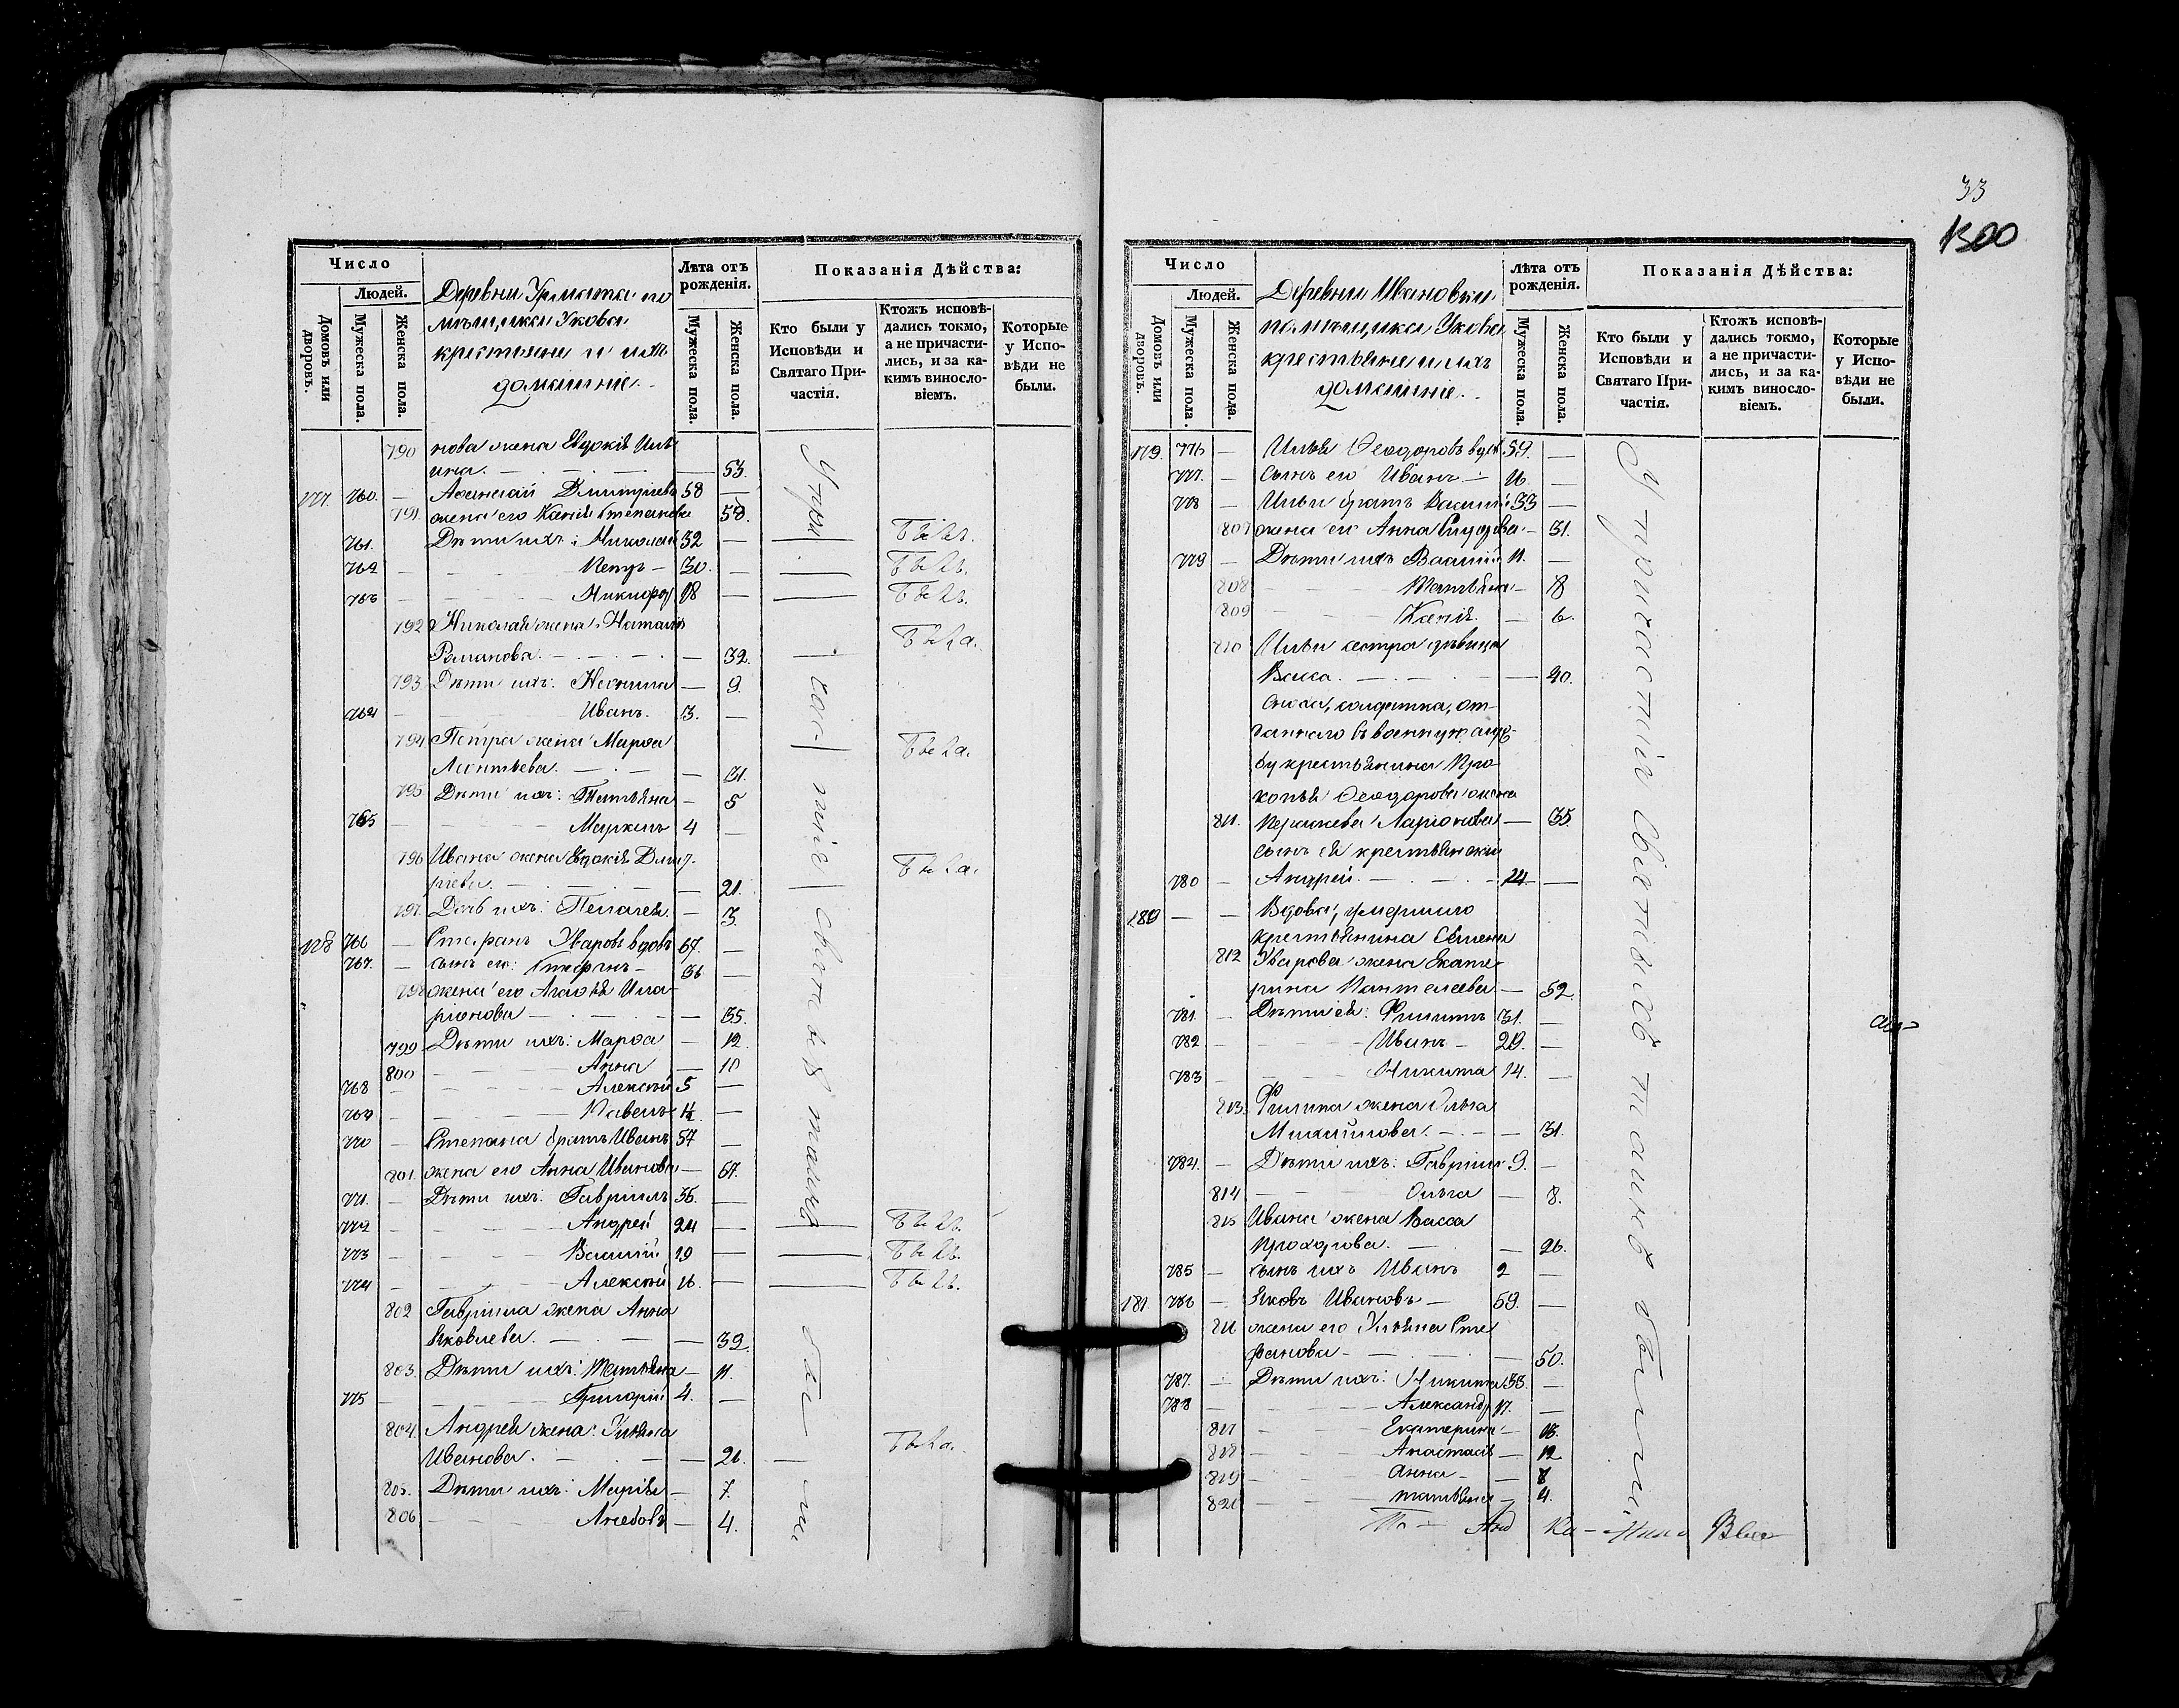 Число
Людей.
Домовъ или дворовъ.
Мужеска пола.
Женска пола.
Деревни Урмата по
мѣщика Укова
крестьяне и ихъ
домашніе.
Лѣта отъ рожденія.
Мужеска пола.
Женска пола.
Показанія Дѣйства:
Кто были у Исповѣди и Святаго Причастія.
Ктожъ исповѣдались токмо, а не причастились, и за какимъ винословіемъ.
Которые у Исповѣди не были.
790 нова жена Евдокія Иль
ина. — 53.
177. 760. — Аѳанасій Дмитріевъ 58 —
791. жена его Ксенія Степанова 58.
761. Дѣти ихъ: Николай 32 — Былъ.
762 — Петръ — 30. — Былъ.
763 — Никифоръ 18 — Былъ.
792 Николая жена Наталія
Романова. — 32. Была.
793 Дѣти ихъ: Неонила — 9.
764 — Иванъ. 3. —
794 Петра жена Марѳа
Леонтьева. — 31. Была.
795 Дѣти ихъ: Татьяна — 5
765 — Маркелъ 4 —
796 Ивана жена Евдокія Дмит-
ріева. — 21. Была.
797. Дочь ихъ: Пелагея. — 3.
178 766 — Стефанъ Уваровъ вдовъ 67. —
767. — сынъ его: Стефанъ — 36 —
798 жена его Агаѳья Ила-
ріонова — 35.
799 Дѣти ихъ: Марѳа — 12.
800 — Анна — 10
768 — Алексѣй 5 —
769 — Павелъ 1½ —
770 — Степана братъ Иванъ 57 —
801. жена его Анна Иванова — 57.
771. — Дѣти ихъ: Гавріилъ 35. —
772 — Андрей 24 — Былъ.
773 — Василій 19 — Былъ.
774 — Алексѣй 16. — Былъ.
802 Гавріила жена Анна
Яковлева. — 32.
803. Дѣти ихъ: Татьяна — 11.
775 — Григорій 4. —
804. Андрея жена: Ульяна
Иванова. — 21. Была.
805. Дѣти ихъ: Марія — 7.
806 — Любовь — 4.
У при
час
тіи
святыхъ таинъ
бы
ли
33
1300
Число
Людей.
Домовъ или дворовъ.
Мужеска пола.
Женска пола.
Деревни Ивановки
помѣщика Укова
крестьяне и ихъ
домашніе.
Лѣта отъ рожденія.
Мужеска пола.
Женска пола.
Показанія Дѣйства:
Кто были у Исповѣди и Святаго Причастія.
Ктожъ исповѣдались токмо, а не причастились, и за какимъ винословіемъ.
Которые у Исповѣди не были.
179. 776 — Илья Ѳеодоровъ вдов. 59. —
777. — Сынъ его Иванъ — 16. —
778 — Ильи братъ Василій 33 —
807 жена его Анна — 31.
779 — Дѣти ихъ Василій 11. —
808 — Татьяна — 8
809 — Ксенія. — 6.
810 Ильи сестра дѣвица
Васса. — 20.
Сноха, солдатка, от-
даннаго въ военную служ-
бу крестьянина Про-
копья Ѳеодорова жена
811. Параскева Ларіонова — 35.
сынъ ея крестьянскій
780 — Андрей. — 14 —
180 — — Вдова, умершаго
крестьянина Семена
812 Уварова жена Екате-
рина Пантелеева — 52.
781. — Дѣти ея: Филиппъ 31. —
782 — Иванъ — 29. —
783 — Никита 14. —
813. Филипа жена Ольга
Михайлова. — 31.
784. — Дѣти ихъ: Гавріилъ 9. —
814 — Ольга — 8.
815 Ивана жена Васса
Прохорова. — 26.
785 — сынъ ихъ Иванъ 2 —
181. 786 — Яковъ Ивановъ — 59. —
816 жена его Ульяна Сте
фанова — 50.
787. — Дѣти ихъ: Никита 33. —
788 — Александръ 17. —
817 — Екатерина — 16.
818 — Анастасія — 12
819 — Анна — 8
820 — Татьяна — 4.
У причастіи святыхъ таинъ были